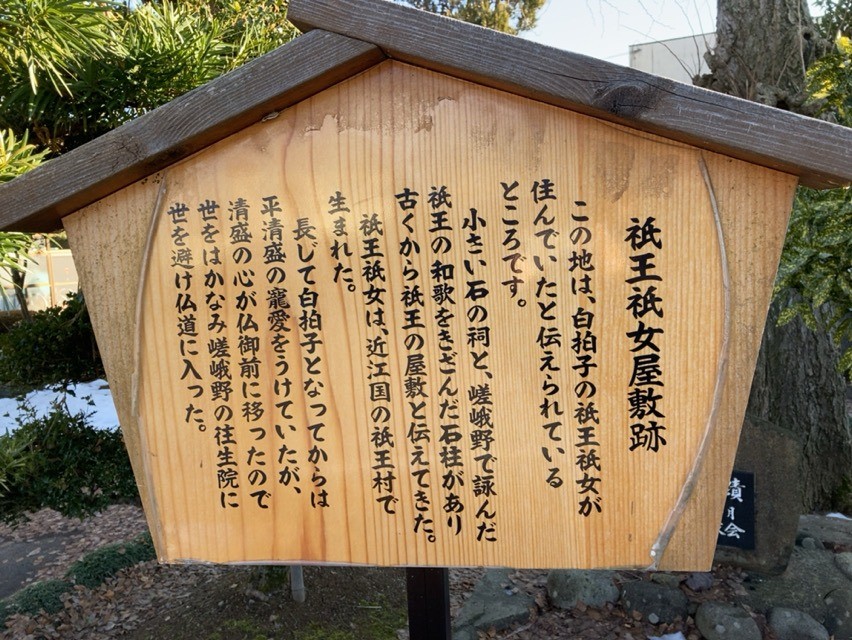 祇王祇女屋敷跡
この地は、白拍子の祇王祇女が
住んでいたと伝えられている
ところです。
小さい石の祠と、嵯峨野で詠んだ
祇王の和歌をきざんだ石柱があり
古くから祇王の屋敷と伝えてきた。
祇王祇女は、近江国の祇王村で
生まれた。
長じて白拍子となってからは
平清盛の寵愛をうけていたが、
清盛の心が仏御前に移ったので
世をはかなみ嵯峨野の往生院に
世を避け仏道に入った。
月
会